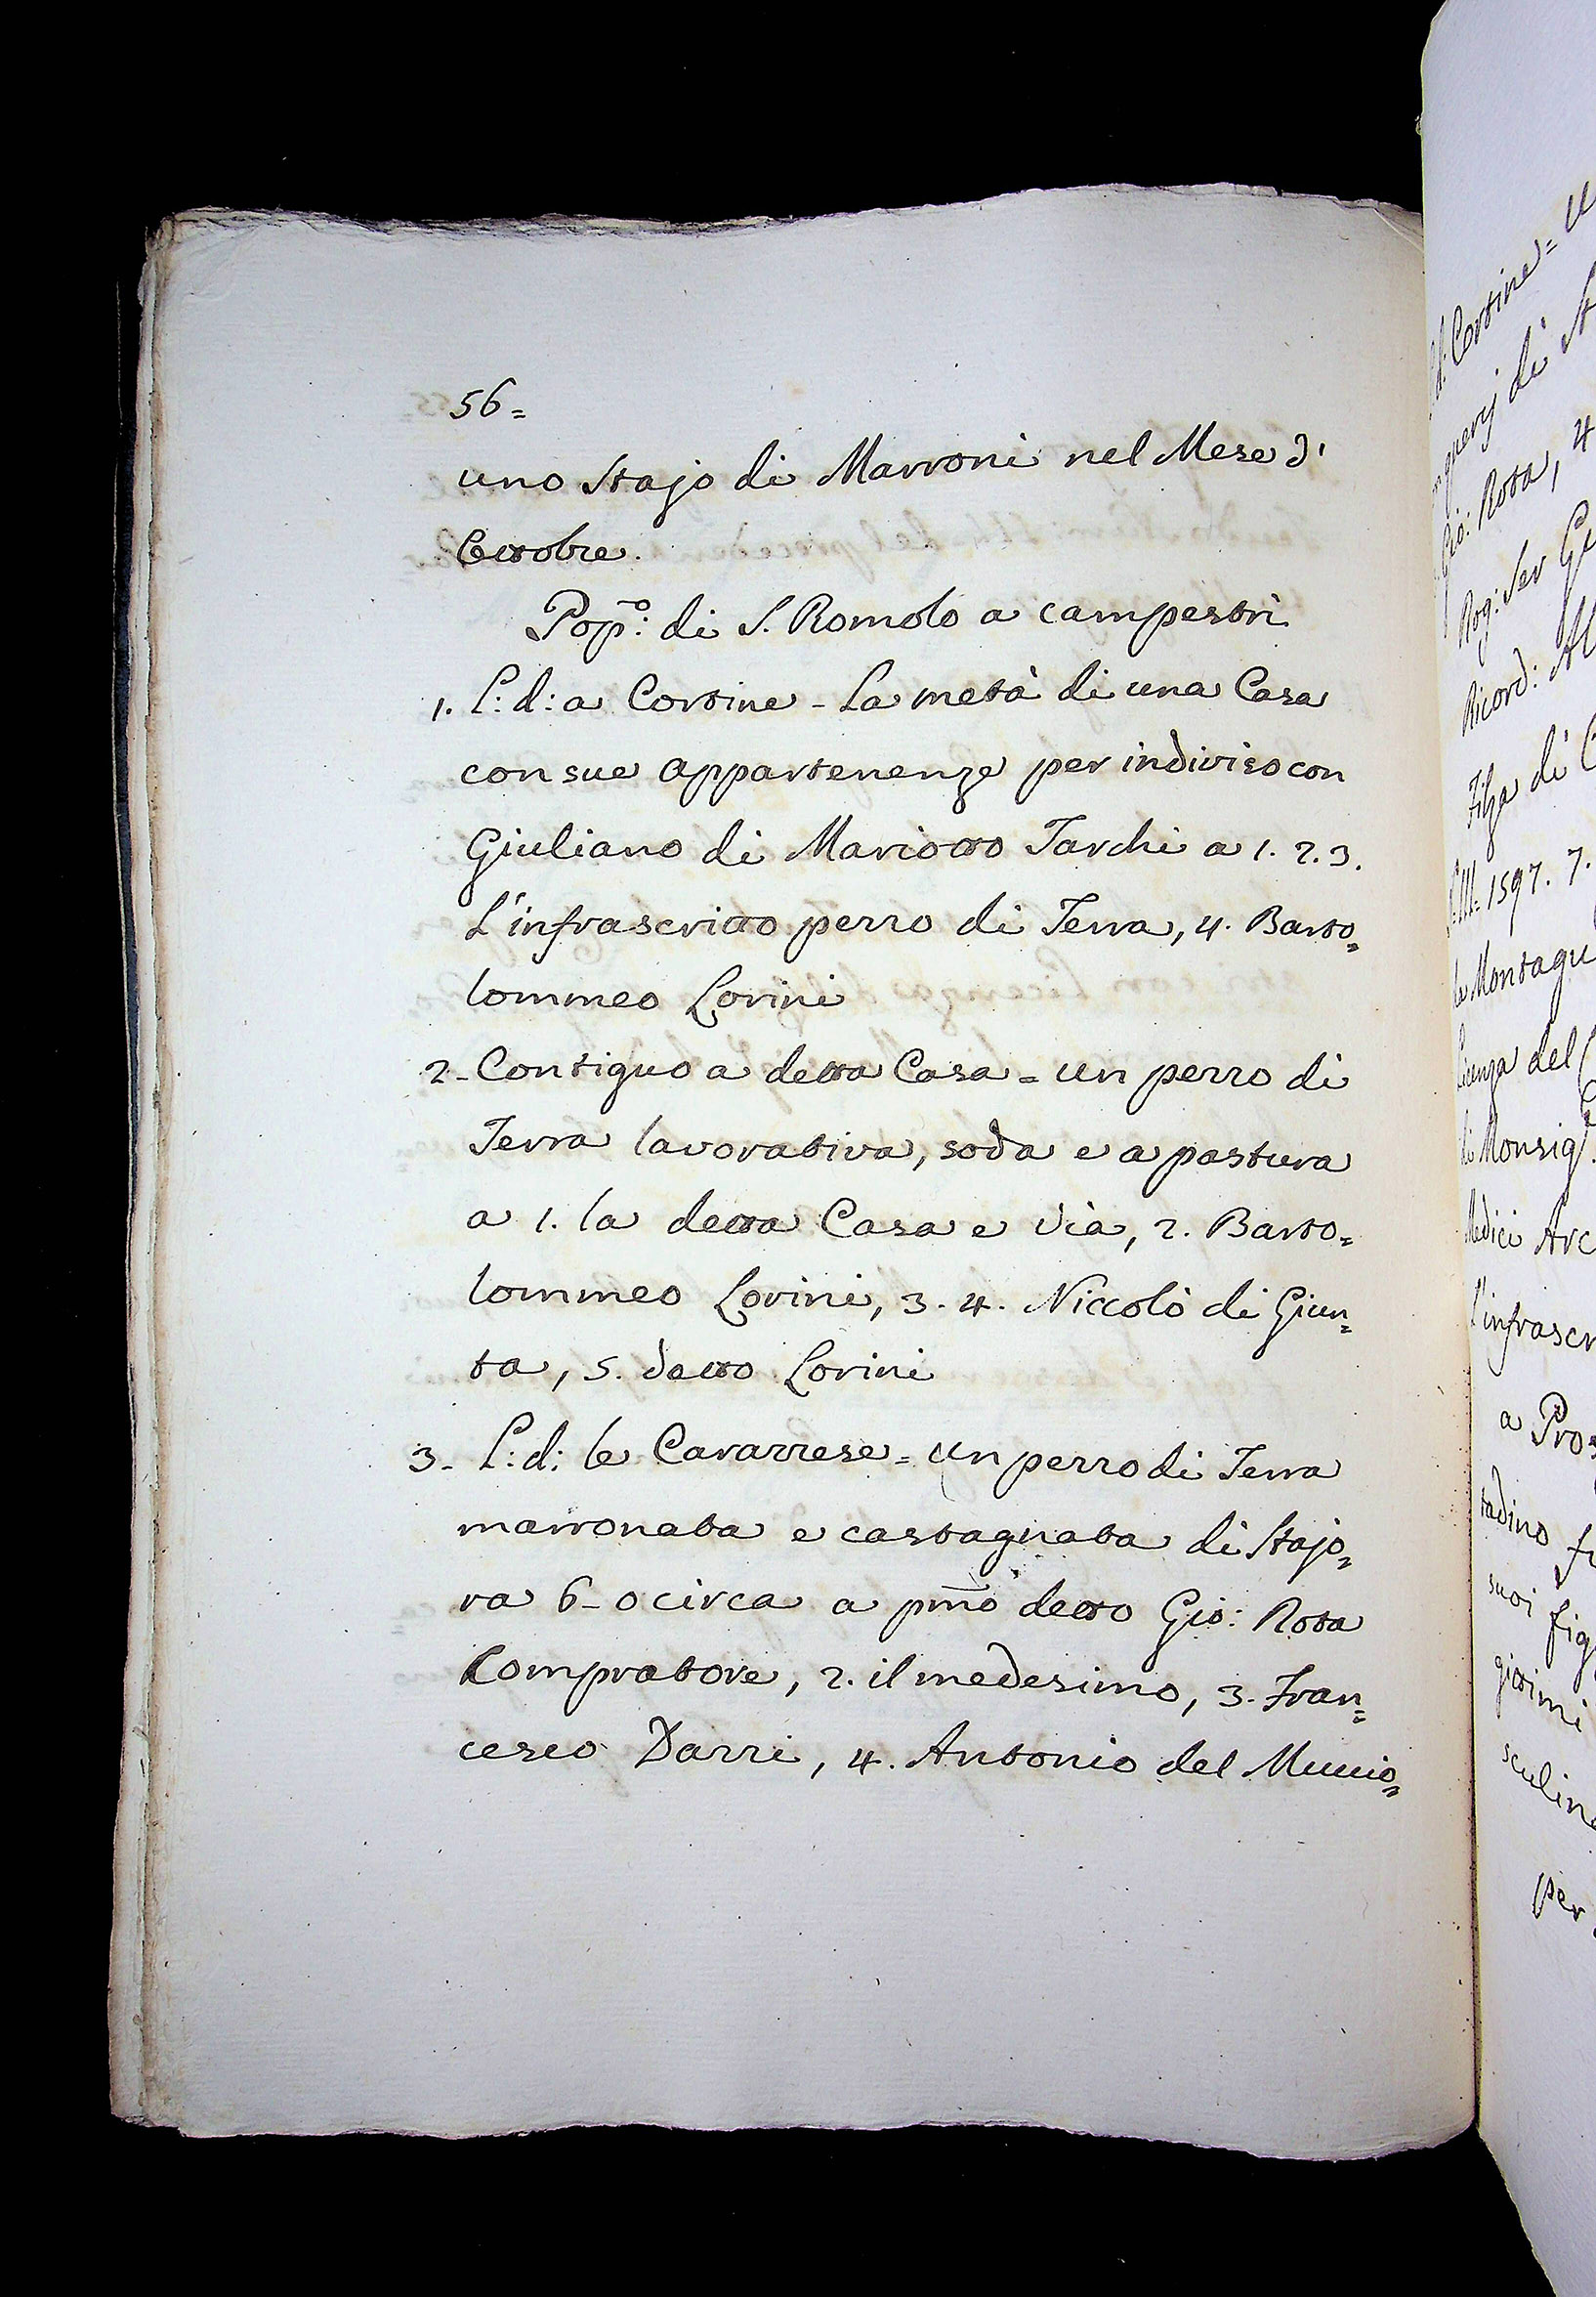 56=
uno Stajo di Marroni nel Mese d'
Ottobre.
Pop.º: di S. Romolo a campestri
1. L: d: a Cortine - La metà di una Casa
con sue appartenenze per indiviso con
Giuliano di Mariotto Tarchi a 1. 2. 3.
L'infrascritto pezzo di Terra, 4. Barto=
lommeo Lorini
2- Contiguo a detta Casa = un pezzo di
Terra lavorativa, soda e a pastura
a 1. la detta Casa e via, 2. Barto=
lommeo Lorini, 3. 4. Niccolò di Giun=
ta, 5. detto Lorini
3- L: d: le Cavazzese = un pezzo di Terra
marronata e castagnata di Stajo=
ra 6-0 circa a pm̃o detto Gio: Rota
Compratore, 2. il medesimo, 3. Fran=
cesco Dazzi, 4. Antonio del
d: Cortine = U
di
Gio: Rota, 4
Rog: Ser
Ricord:
Filza di
1597. 7.
Montagu
Licenza del
di Monsig
Medici Arc
L'infrascr
a
tadino
suoi fig
gittimi
sculin
per